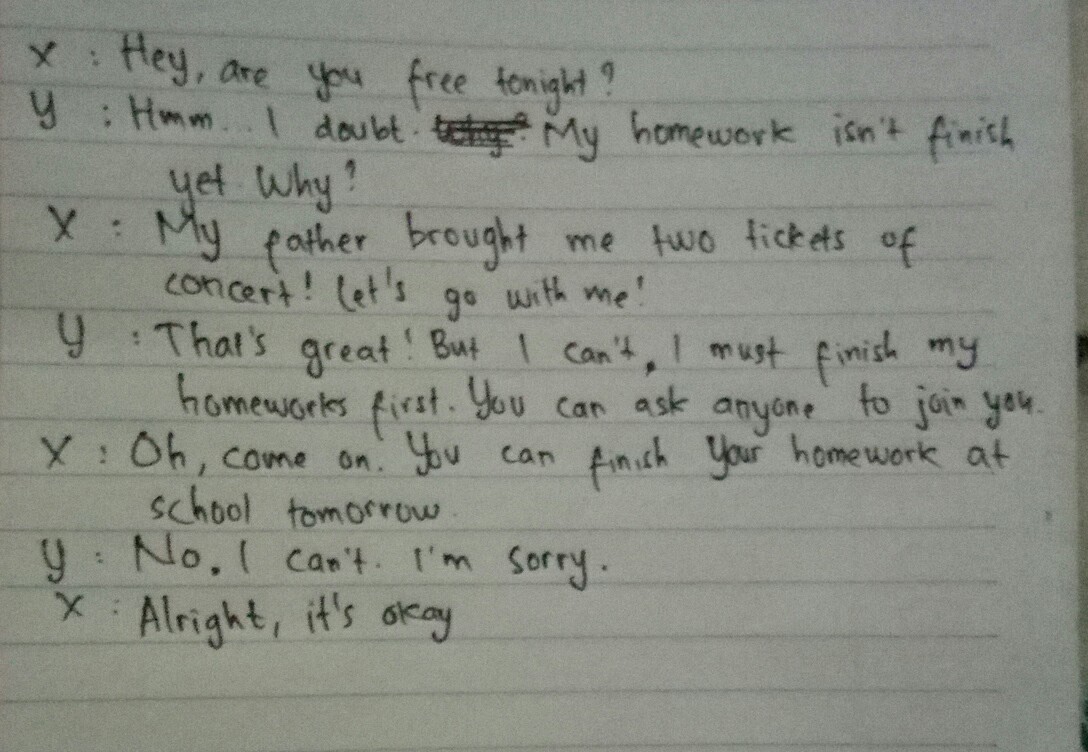 X : Hey, are you free tonight?
Y : Hmm... I doubt. My homework isn't finish
yet. Why?
X : My father brought me two tickets of
concert! Let's go with me!
Y : That's great! But I can't, I must finish my
homeworks first. You can ask anyone to join you.
X : Oh, come on. You can finish your homework at
school tomorrow.
Y : No, I can't. I'm sorry.
X : Alright, it's okay